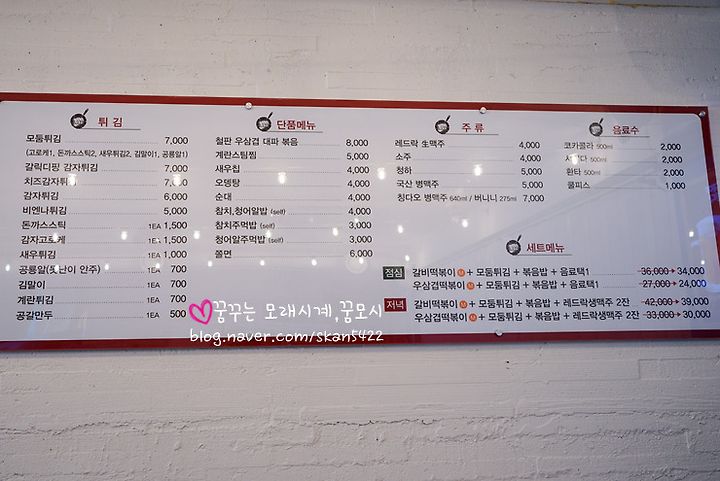 튀 김
모둠튀김 7,000
(고로케1, 돈까스스틱2, 새우튀김2, 김말이1, 공룡알1)
갈릭디핑 감자튀김 7,000
치즈감자튀김 7,000
감자튀김 6,000
비엔나튀김 5,000
돈까스스틱 1EA 1,500
감자고로케 1EA 1,500
새우튀김 1EA 1,000
공룡알(못난이 안주) 1EA 700
김말이 1EA 700
계란튀김 1EA 700
공갈만두 1EA 500
단품메뉴
철판 우삼겹 대파 볶음 8,000
계란스팀찜 5,000
새우칩 4,000
오뎅탕 4,000
순대 4,000
참치,청어알밥 (self) 4,000
참치주먹밥 (self) 3,000
청어알주먹밥 (self) 3,000
쫄면 6,000
주 류
레드락 生맥주 4,000
소주 4,000
청하 5,000
국산 병맥주 4,000
칭다오 병맥주 640ml / 버니니 275ml 7,000
음료수
코카콜라 500ml 2,000
500ml 2,000
환타 500ml 2,000
쿨피스 1,000
세트메뉴
점심 갈비떡볶이 M + 모둠튀김 + 볶음밥 + 음료택1 36,000 34,000
우삼겹떡볶이 M + 모둠튀김 + 볶음밥 + 음료택1 27,000 24,000
저녁 갈비떡볶이 M + 모둠튀김 + 볶음밥 + 레드락생맥주 2잔 42,000 39,000
우삼겹떡볶이 M + 모둠튀김 + 볶음밥 + 레드락생맥주 2잔 33,000 30,000
꿈꾸는 모래시계,꿈모시
blog.naver.com/skan5422